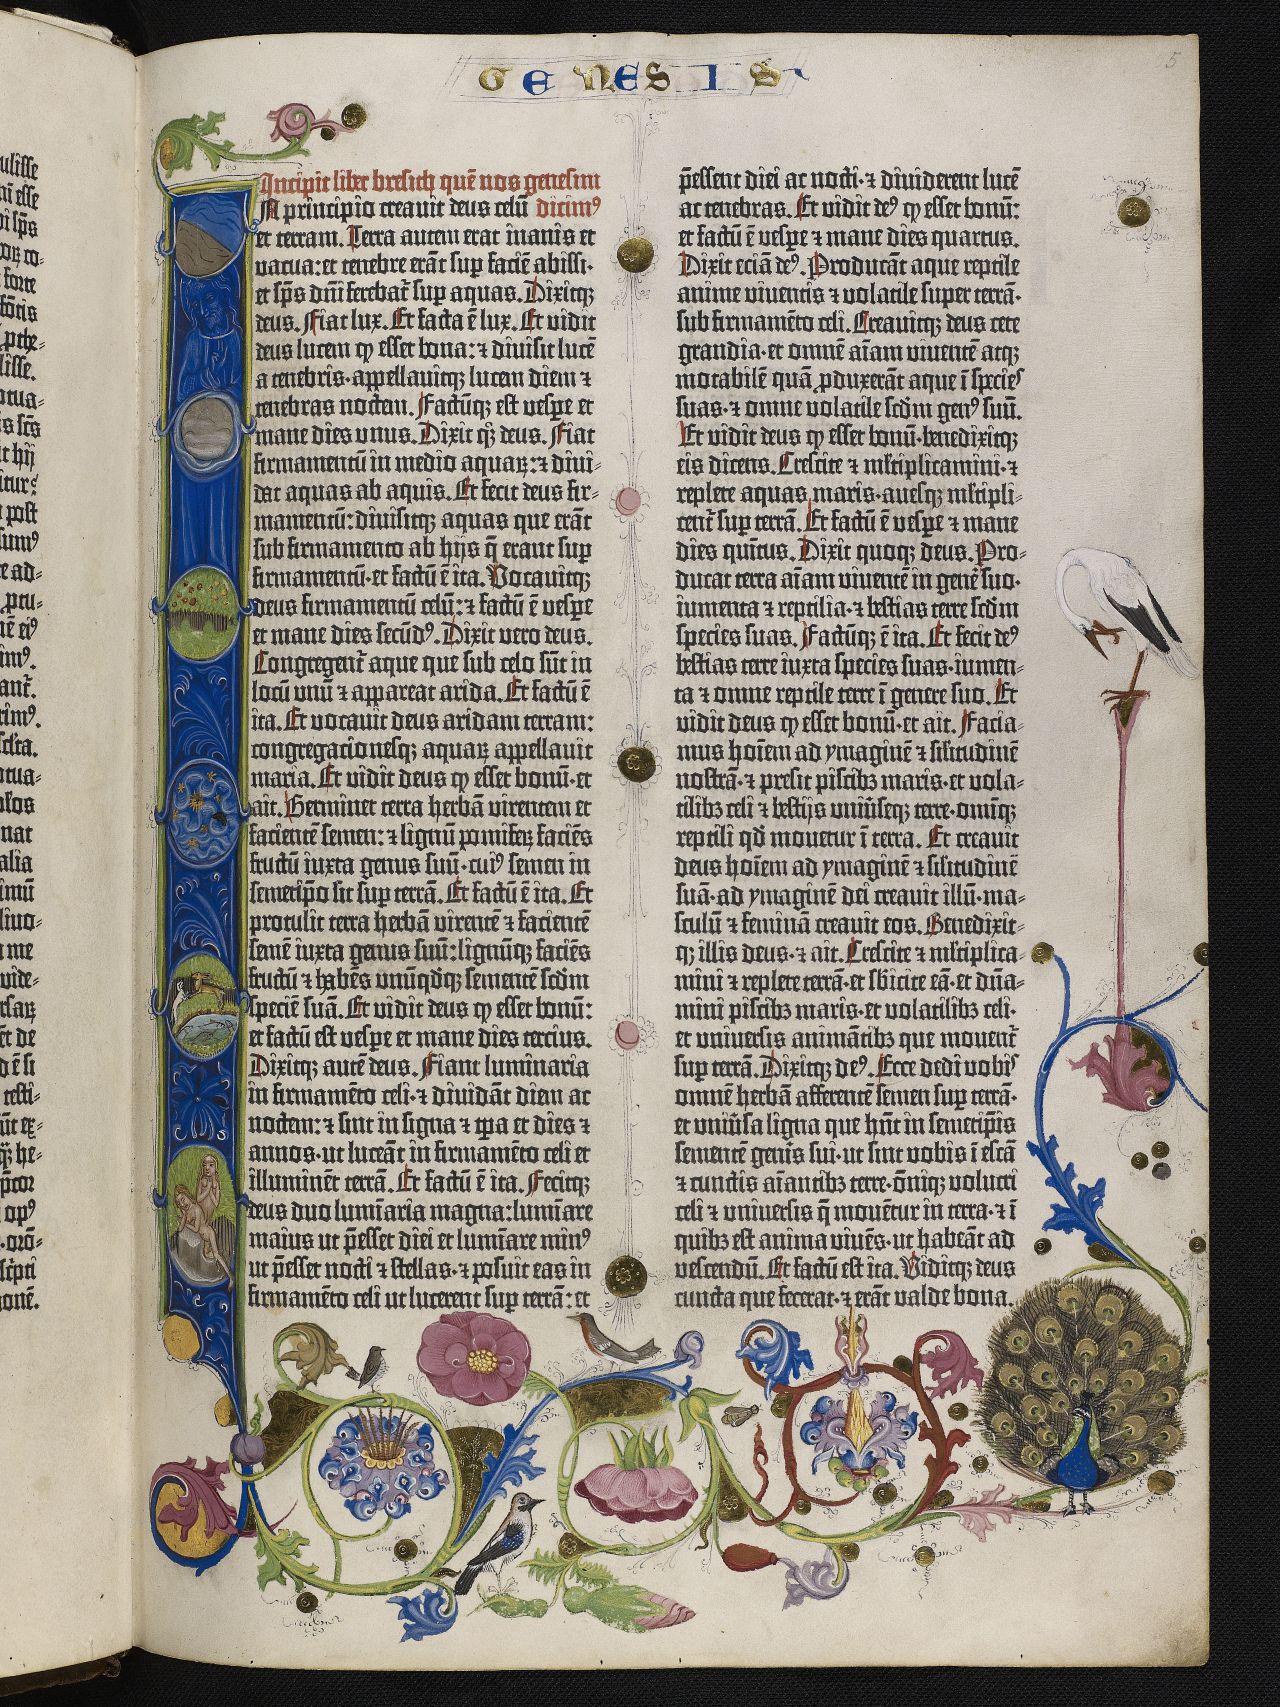 GENESIS
5
Incipit liber bresich quē nos genesim
In principio creavit deus celū dicimꝰ
et terram. Terra autem erat inanis et
vacua: et tenebre erāt sup faciē abissi·
et spūs dn̄i ferebat̄ sup aquas. Dixitqꝫ
deus. Fiat lux. Et facta ē lux. Et vidit
deus lucem ꝙ esset bona: ⁊ divisit lucē
a tenebris·appellavitqꝫ lucem diem ⁊
tenebras noctem. Factūqꝫ est vespe et
mane dies unus. Dixit qꝫ deus. Fiat
firmamentū in medio aquaꝝ: ⁊ divi-
dat aquas ab aquis. Et fecit deus fir-
mamentū: divisitqꝫ aquas que erāt
sub firmamento ab hijs q̄ erant sup
firmamentū·et factū ē ita. Vocavitqꝫ
deus firmamentū celū: ⁊ factū ē vespe
et mane dies secūdꝰ. Dixit vero deus.
Congregent̄ aque que sub celo sūt in
locū unū ⁊ appareat arida. Et factū ē
ita. Et vocavit deus aridam terram:
congregacionesqꝫ aquaꝝ appellavit
maria. Et vidit deus ꝙ esset bonū·et
ait. Germinet terra herbā virentem et
facientē semen: ⁊ lignū pomiferꝫ faciēs
fructū iuxta genus suū·cuiꝰ semen in
semetip̄o sit sup terrā. Et factū ē ita. Et
protulit terra herbā virentē ⁊ facientē
semē iuxta genus suū: lignūqꝫ faciēs
fructū ⁊ habēs unūqdqꝫ sementē scdm
speciē suā. Et vidit deus ꝙ esset bonū:
et factū est vespe et mane dies tercius.
Dixitqꝫ autē deus. Fiant luminaria
in firmamēto celi·⁊ dividāt diem ac
noctem: ⁊ sint in signa ⁊ tp̄a et dies ⁊
annos·ut luceāt in firmamēto celi et
illuminēt terrā. Et factū ē ita. Fecitqꝫ
deus duo lumīaria magna: lumīare
maius ut p̄esset diei et lumīare minꝰ
ut p̄esset nocti ⁊ stellas·⁊ posuit eas in
firmamēto celi ut lucerent sup terrā: et
p̄essent diei ac nocti·⁊ dividerent lucē
ac tenebras. Et vidit deꝰ ꝙ esset bonū:
et factū ē vespe ⁊ mane dies quartus.
Dixit eciā deꝰ. Producāt aque reptile
anime viventis ⁊ volatile super terrā·
sub firmamēto celi. Creavitqꝫ deus cete
grandia·et omnē aīam viventē atqꝫ
motabilē quā pduxerāt aque ī species
suas·⁊ omne volatile scdm genꝰ suū.
Et vidit deus ꝙ esset bonū·benedixitqꝫ
eis dicens. Crescite ⁊ mltiplicamini·⁊
replete aquas maris·avesqꝫ mltipli-
cent̄ sup terrā. Et factū ē vespe ⁊ mane
dies quītus. Dixit quoqꝫ deus. Pro-
ducat terra aīam viventē in gene suo·
iumenta ⁊ reptilia·⁊ bestias terre scdm
species suas. Factūqꝫ ē ita. Et fecit deꝰ
bestias terre iuxta species suas·iumen-
ta ⁊ omne reptile terre ī genere suo. Et
vidit deus ꝙ esset bonū·et ait. Facia-
mus hoīem ad ymaginē ⁊ silitudinē
nostrā·⁊ presit piscibꝫ maris·et vola-
tilibꝫ celi ⁊ bestijs univseqꝫ terre·omīqꝫ
reptili qd movetur ī terra. Et creavit
deus hoīem ad ymaginē ⁊ silitudinē
suā·ad ymaginē dei creavit illū·ma-
sculū ⁊ feminā creavit eos. Benedixit-
qꝫ illis deus·⁊ ait. Crescite ⁊ mltiplica-
mini ⁊ replete terrā·et sbicite eā·et dn̄a-
mini piscibꝫ maris·et volatilibꝫ celi·
et universis animātibꝫ que movent̄
sup terrā. Dixitqꝫ deꝰ. Ecce dedi vobis
omnē herbā afferentē semen sup terrā·
et univsa ligna que hn̄t in semetip̄is
sementē genis sui·ut sint vobis ī escā
⁊ cunctis aīantibꝫ terre·ōniqꝫ volucri
celi ⁊ universis q̄ movētur in terra·⁊ ī
quibꝫ est anima vivēs·ut habeāt ad
vescendū. Et factū est ita. Viditqꝫ deus
cuncta que fecerat·⁊ erāt valde bona.